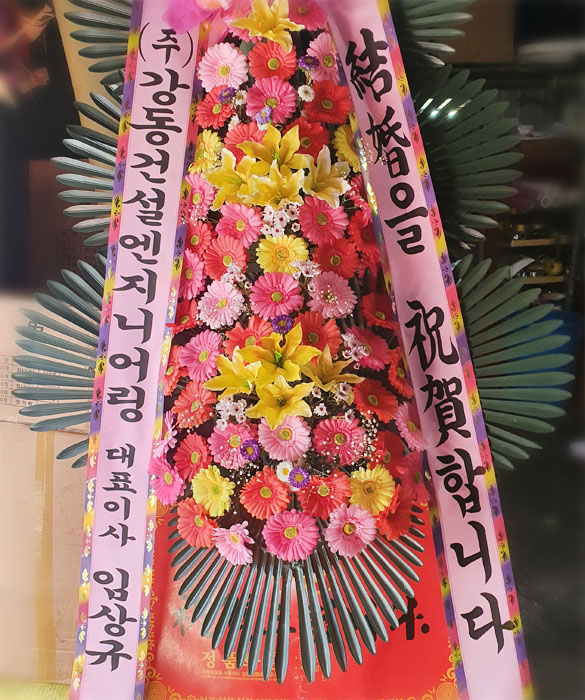 (주)강동건설엔지니어링 대표이사 임상규
結婚을 祝賀합니다
정품